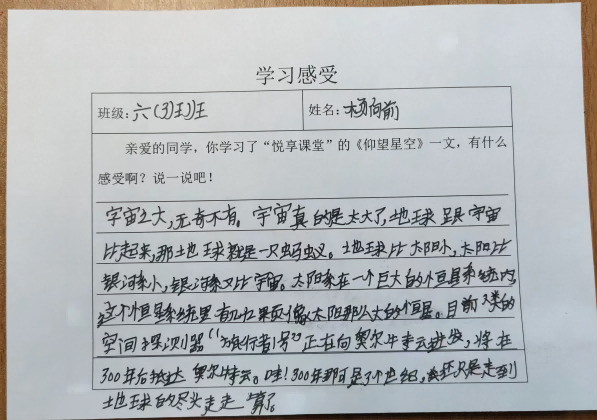 学习感受
班级:六(3)班 姓名:杨向前
亲爱的同学，你学习了“悦享课堂”的《仰望星空》一文，有什么
感受啊？说一说吧！
宇宙之大,无奇不有。宇宙真的是太大了,地球跟宇宙
比起来,那地球就是一只蚂蚁。土地球比太阳小,太阳比
银河系小,银河系又比宇宙。太阳系在一个巨大的恒星系统内,
这个恒星系统里有几亿颗像太阳那么大的恒星。目前人类的
空间探测器“旅行者1号”正在向奥尔牛云进发,将在
300年后抵达奥尔特云。哇!300年那可是3个世纪,我还只是走到
地球的尽头走走算了。